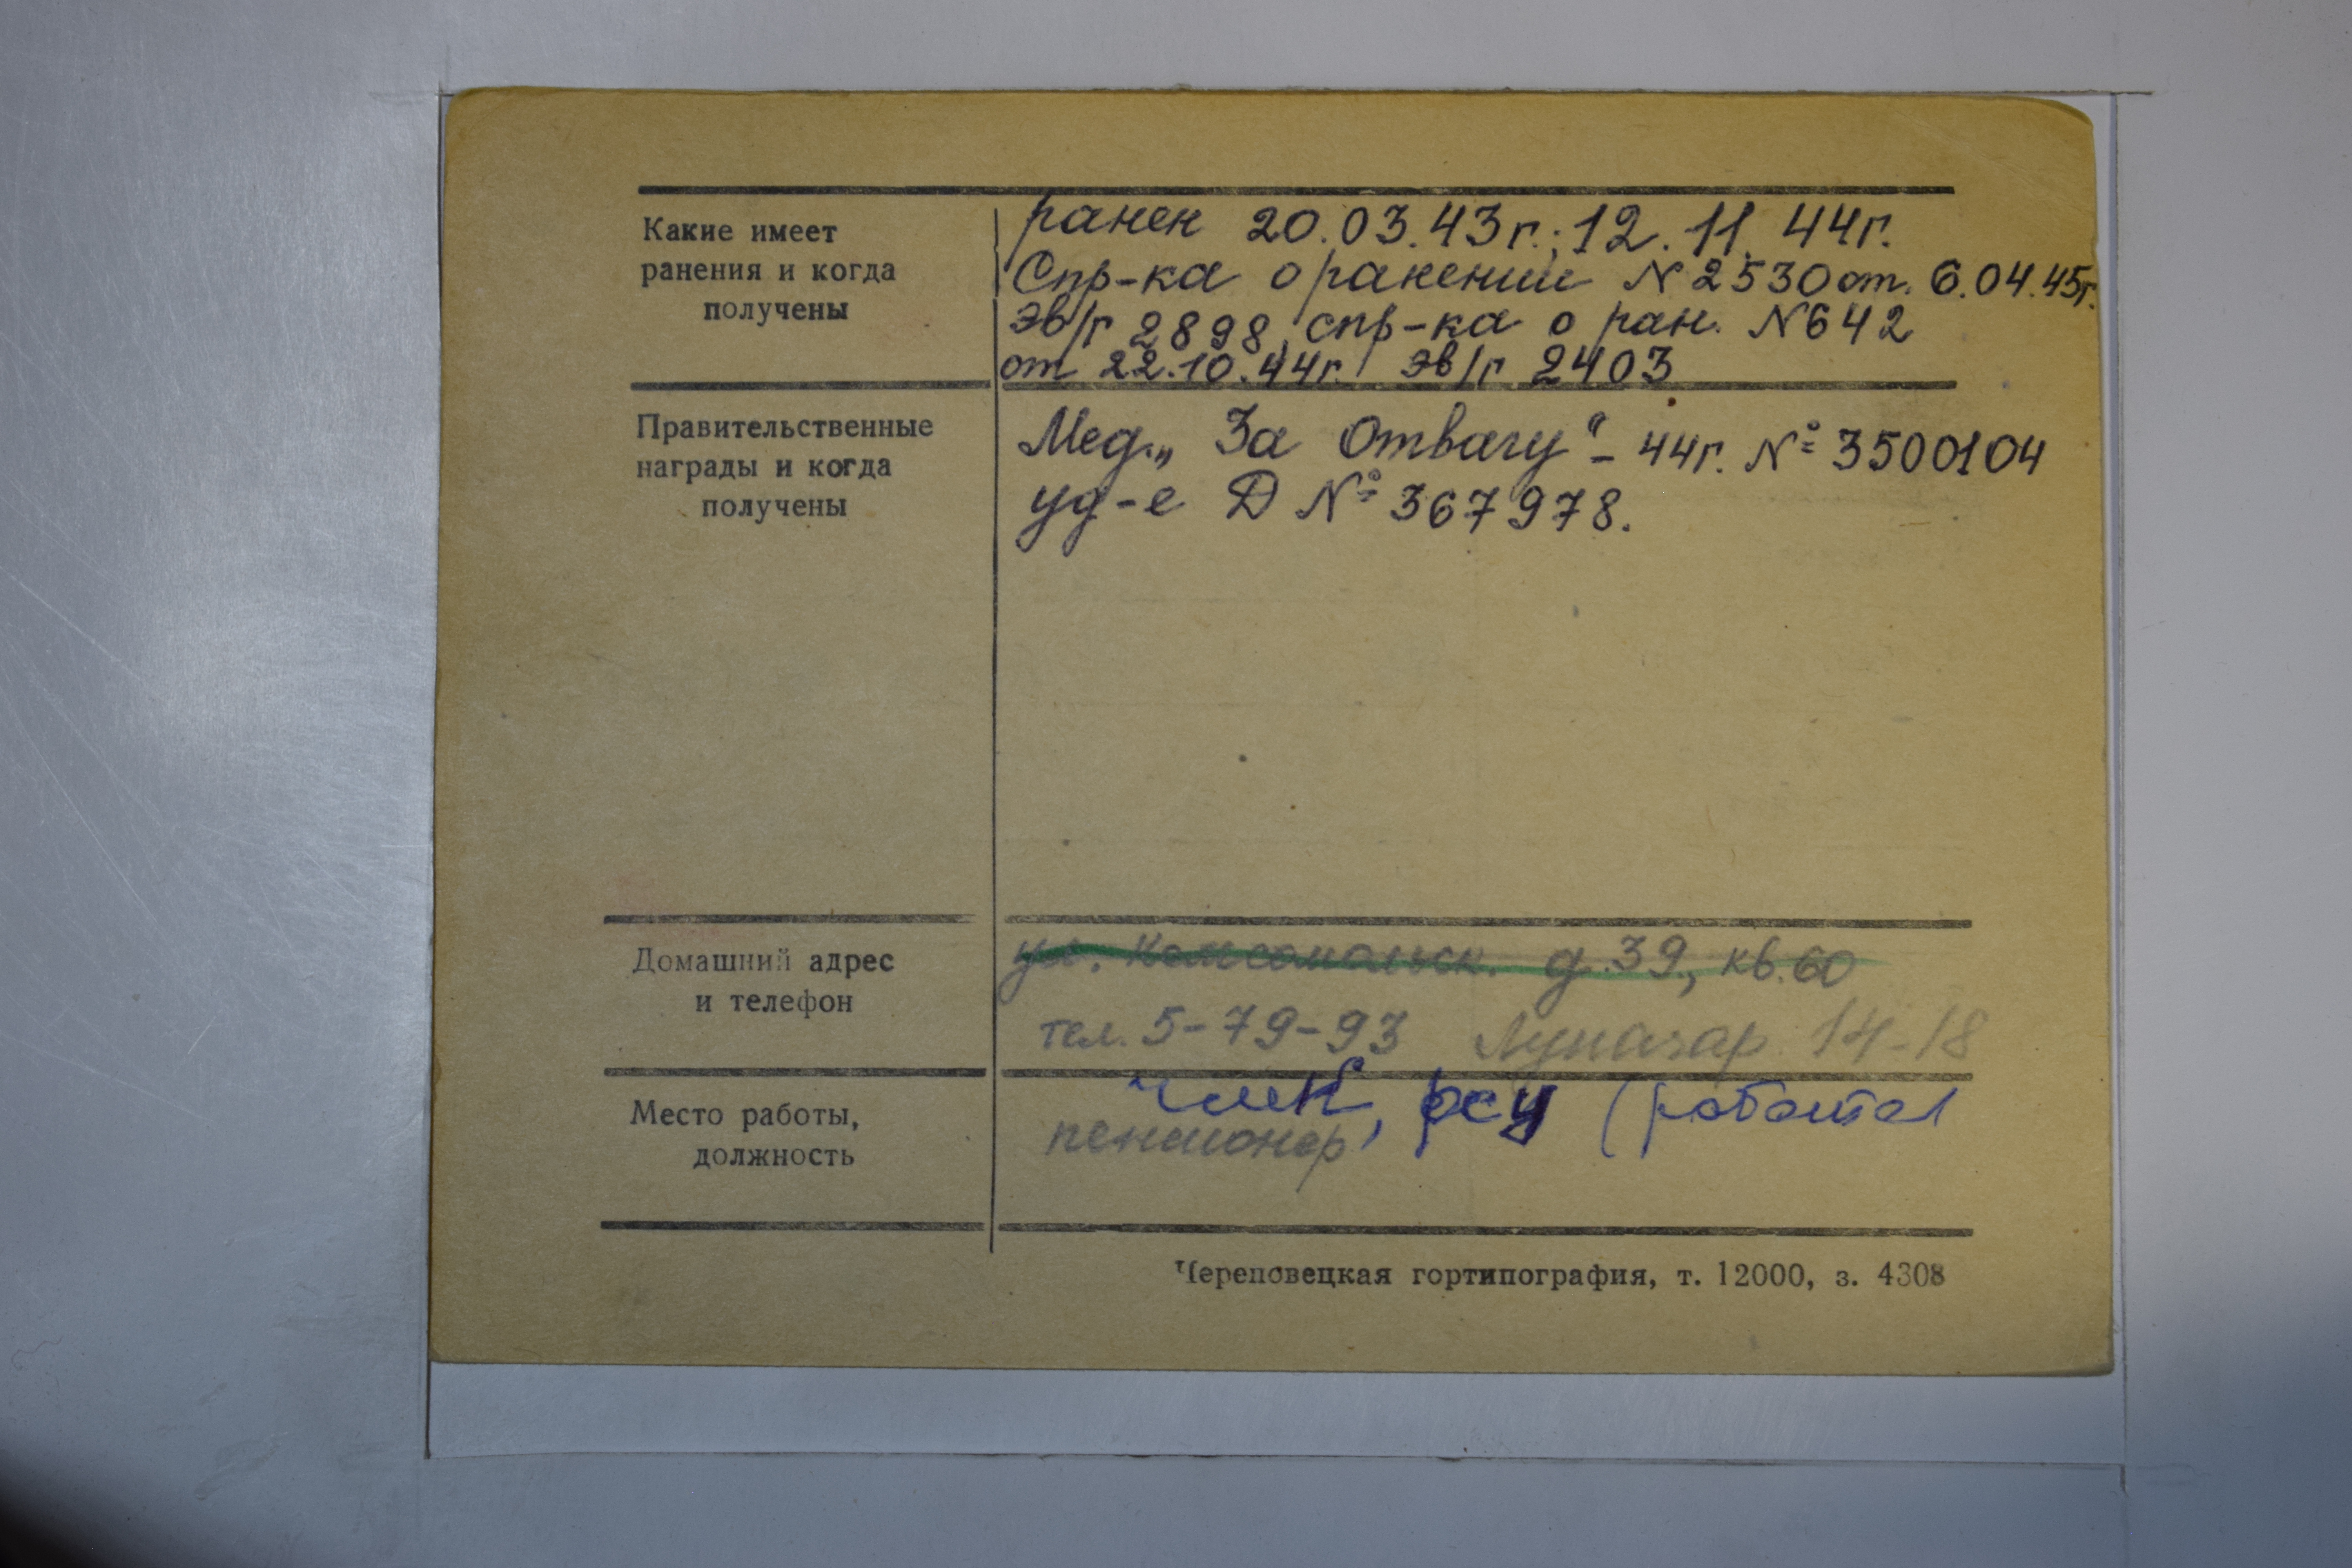 Какие имеет
ранения и когда
получены
ранен 20.03.43г.; 12.11.44г.
Спр-ка о ранении N 2530 от. 6.04.45г.
эв/г 2898, спр-ка о ран. N 642
от 22.10.44г. эв/г 2403
Правительственные
награды и когда
получены
Мед. „За Отвагу" - 44г. № 3500104
уд-е Д № 367978.
Домашний адрес
и телефон
ул. Комсомольск. д. 39, кв. 60
тел. 5-79-93 Луначар 14-18
Место работы,
должность
ЧМК, РСУ (работал
пенсионер
Череповецкая гортипография, т. 12000, з. 4308